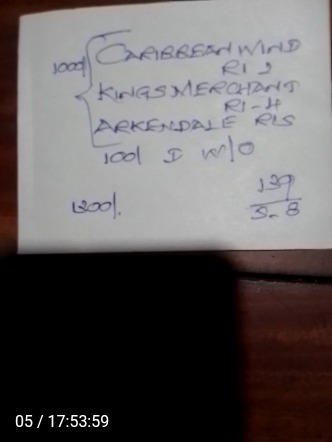 100/
CARIBBEAN WIND
R1 2
KINGS MERCHANT
R1-4
ARKENDALE R15
100/ I W/O
1200/.
139
3-8
05 / 17:53:59